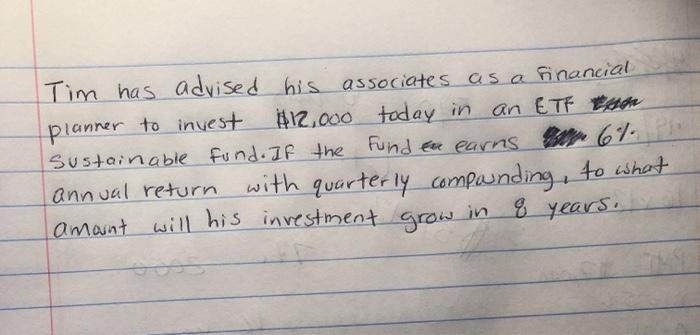 Tim has advised his associates as a financial
planner to invest $12,000 today in an ETF
sustainable fund. IF the fund earns 6%
annual return with quarterly compounding, to what
amount will his investment grow in 8 years.